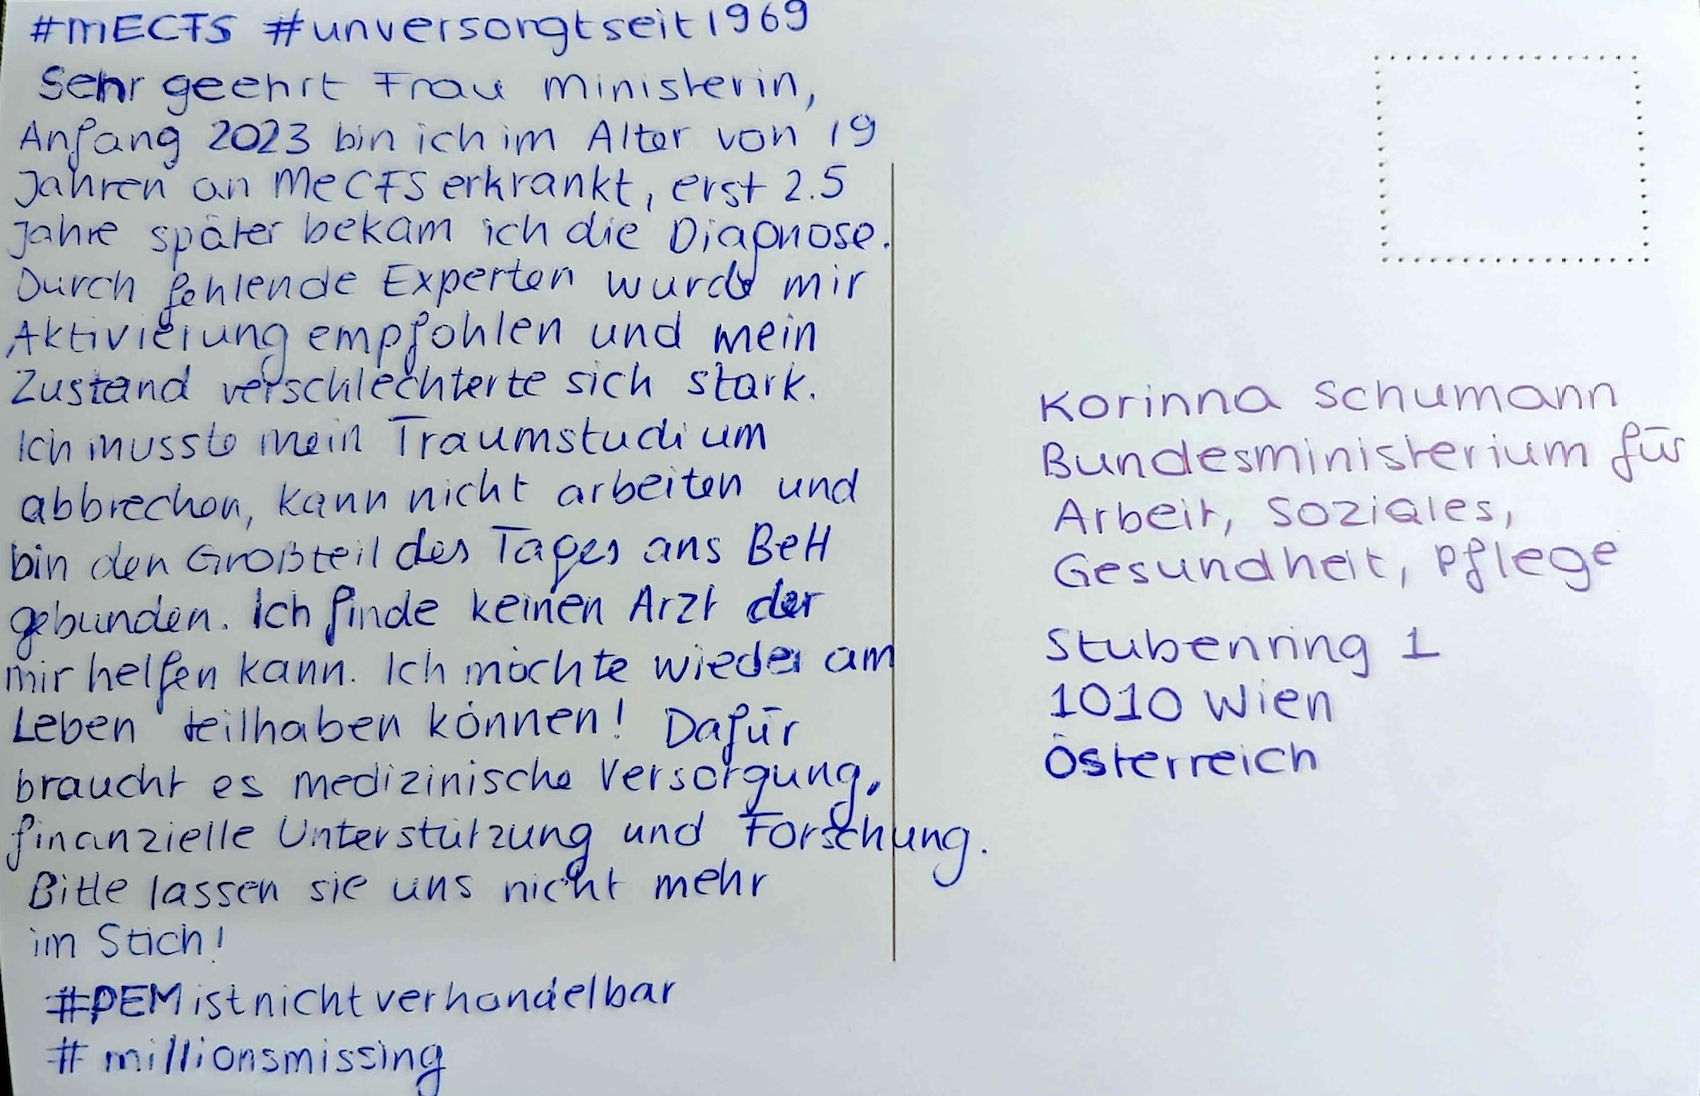 #mECFS #unversorgtseit1969
Sehr geehrt Frau Ministerin,
Anfang 2023 bin ich im Alter von 19
Jahren an MeCFS erkrankt, erst 2.5
Jahre später bekam ich die Diagnose.
Durch fehlende Experten wurde mir
Aktivierung empfohlen und mein
Zustand verschlechterte sich stark.
Ich musste mein Traumstudium
abbrechen, kann nicht arbeiten und
bin den Großteil des Tages ans Bett
gebunden. Ich finde keinen Arzt der
mir helfen kann. Ich möchte wieder am
Leben teilhaben können! Dafür
braucht es medizinische Versorgung,
finanzielle Unterstützung und Forschung.
Bitte lassen sie uns nicht mehr
im Stich!
#PEMistnichtverhandelbar
#millionsmissing
Korinna Schumann
Bundesministerium für
Arbeit, Soziales,
Gesundheit, Pflege
Stubenring 1
1010 Wien
Österreich